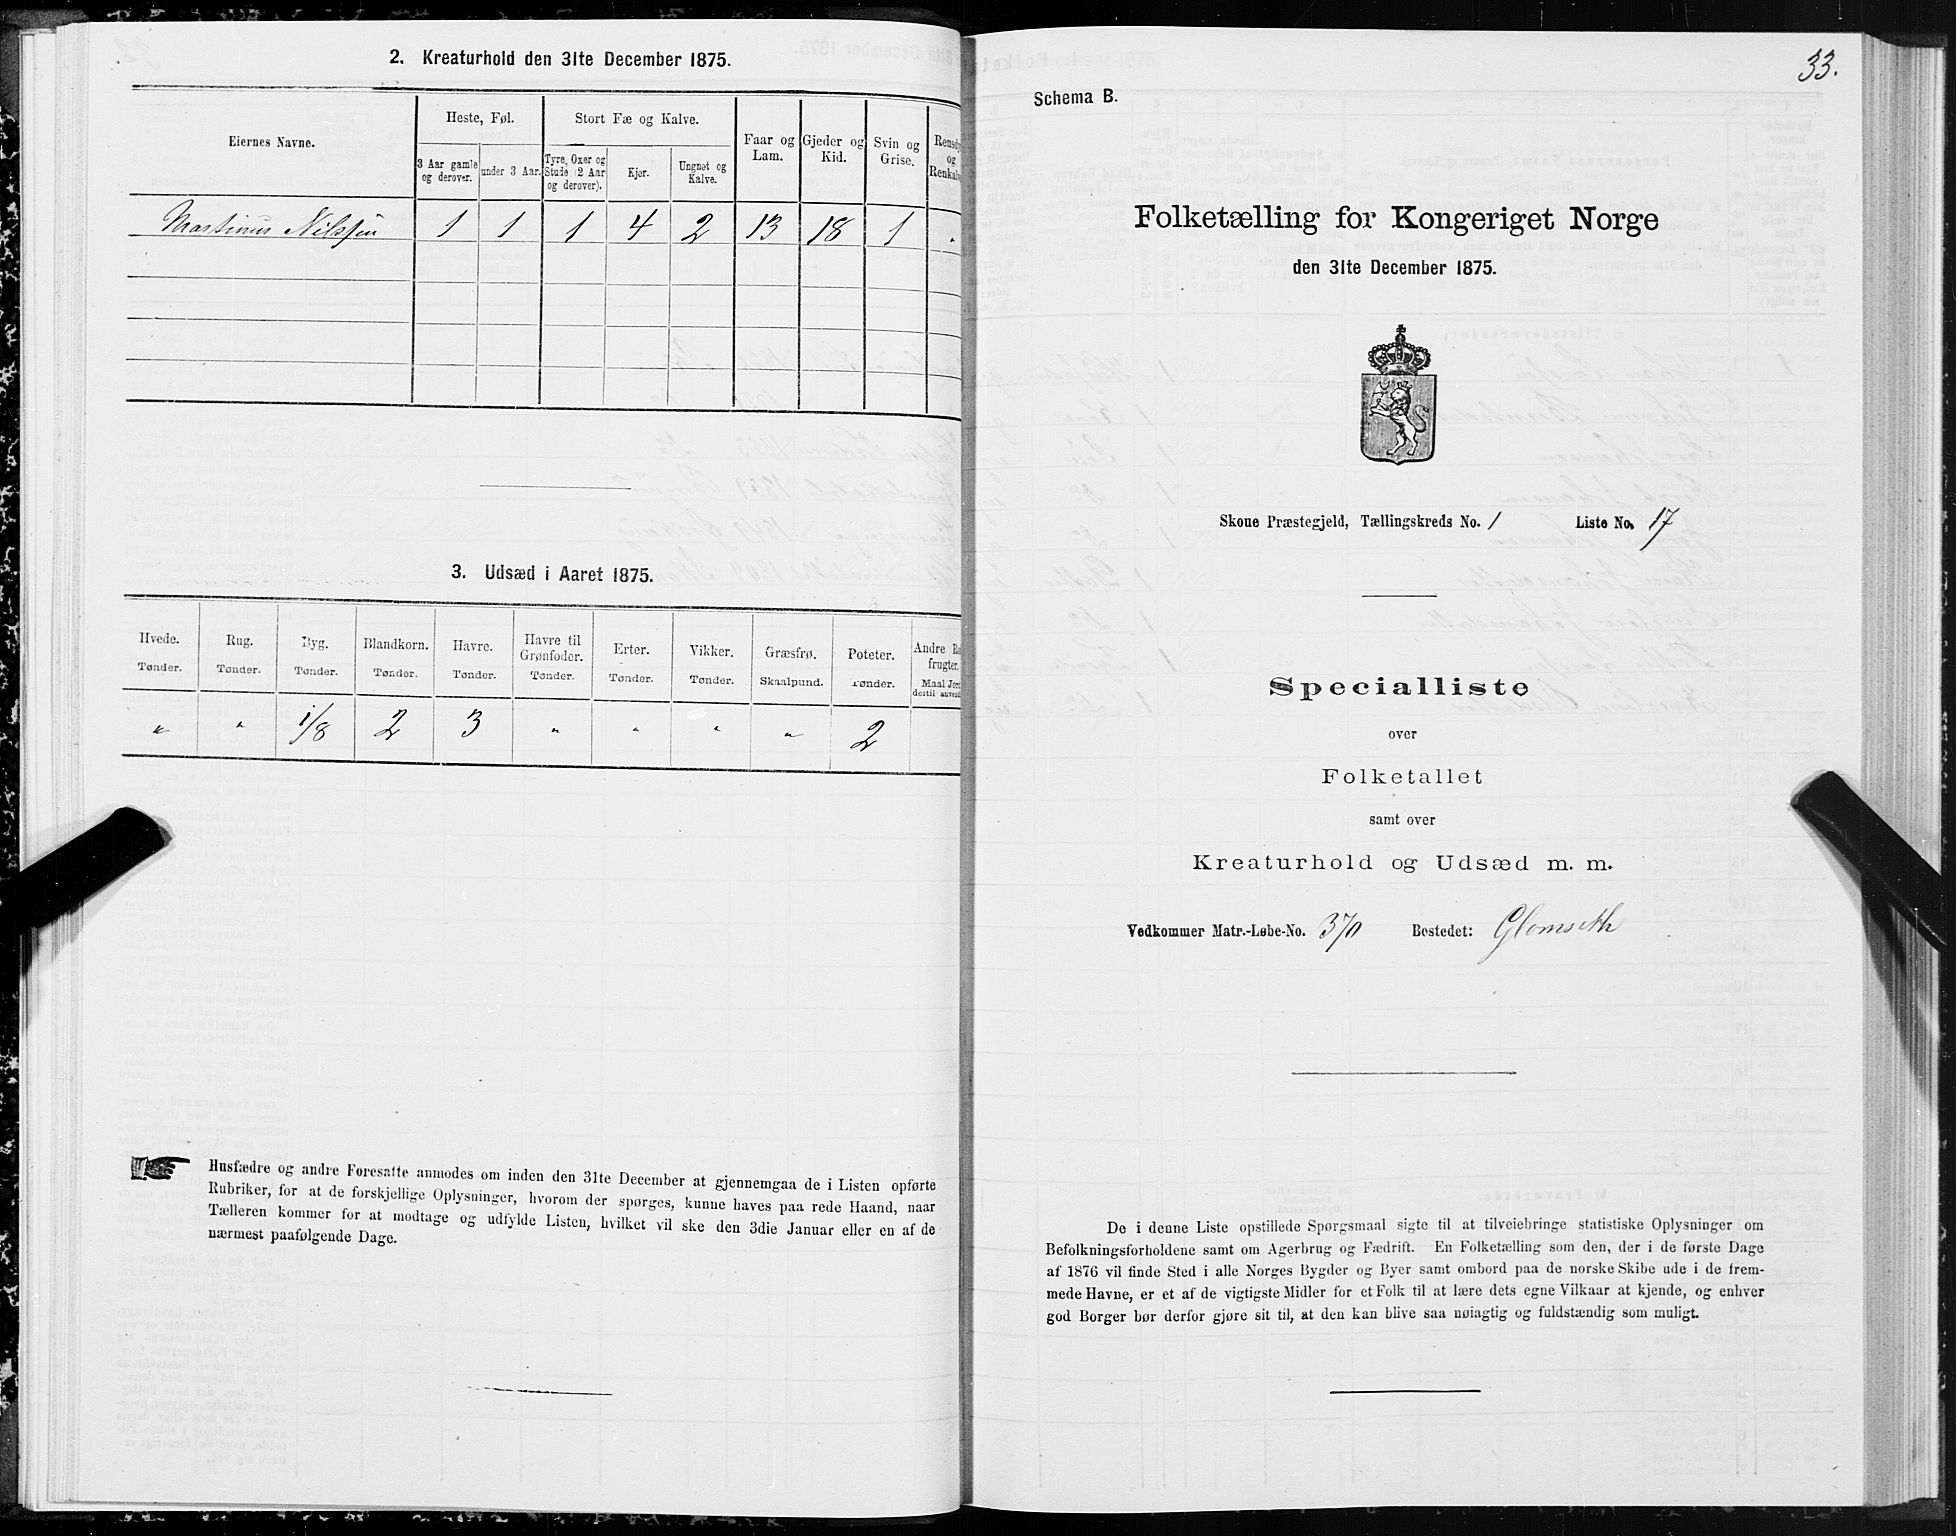 2. Kreaturhold den 31te December 1875.
Eiernes Navne.
Heste, Føl.
Stort Fæ og Kalve.
Faar og Lam.
Gjeder og Kid.
Svin og Grise.
Rensdy
og
Renkalv
3 Aar gamle og derover.
under 3 Aar.
Tyre, Oxer og Stude (2 Aar og derover).
Kjør.
Ungnøt og Kalve.
Martinus Nilssen 1 1 1 4 2 13 18 1 .
3. Udsæd i Aaret 1875.
Hvede. Rug. Byg. Blandkorn. Havre. Havre til Grønfoder. Erter. Vikker. Græsfrø. Poteter. Andre Ro frugter.
Tønder. Tønder. Tønder. Tønder. Tønder. Tønder. Tønder. Tønder. Skaalpund. Tønder. Maal Jord dertil anvend
" " 1/8 2 3 " " " " 2
Husfædre og andre Foresatte anmodes om inden den 31te December at gjennemgaa de i Listen opførte
Rubriker, for at de forskjellige Oplysninger, hvorom der spørges, kunne haves paa rede Haand, naar
Tælleren kommer for at modtage og udfylde Listen, hvilket vil ske den 3die Januar eller en af de
nærmest paafølgende Dage.
33.
Schema B.
Folketælling for Kongeriget Norge
den 31te December 1875.
Skoue Præstegjeld, Tællingskreds No. 1 Liste No. 17
Specialliste
over
Folketallet
samt over
Kreaturhold og Udsæd m. m.
Vedkommer Matr.-Løbe-No. 37a Bostedet: Glomseth
De i denne Liste opstillede Spørgsmaal sigte til at tilveiebringe statistiske Oplysninger om
Befolkningsforholdene samt om Agerbrug og Fædrift. En Folketælling som den, der i de første Dage
af 1876 vil finde Sted i alle Norges Bygder og Byer samt ombord paa de norske Skibe ude i de frem-
mede Havne, er et af de vigtigste Midler for et Folk til at lære dets egne Vilkaar at kjende, og enhver
god Borger bør derfor gjøre sit til, at den kan blive saa nøiagtig og fuldstændig som muligt.